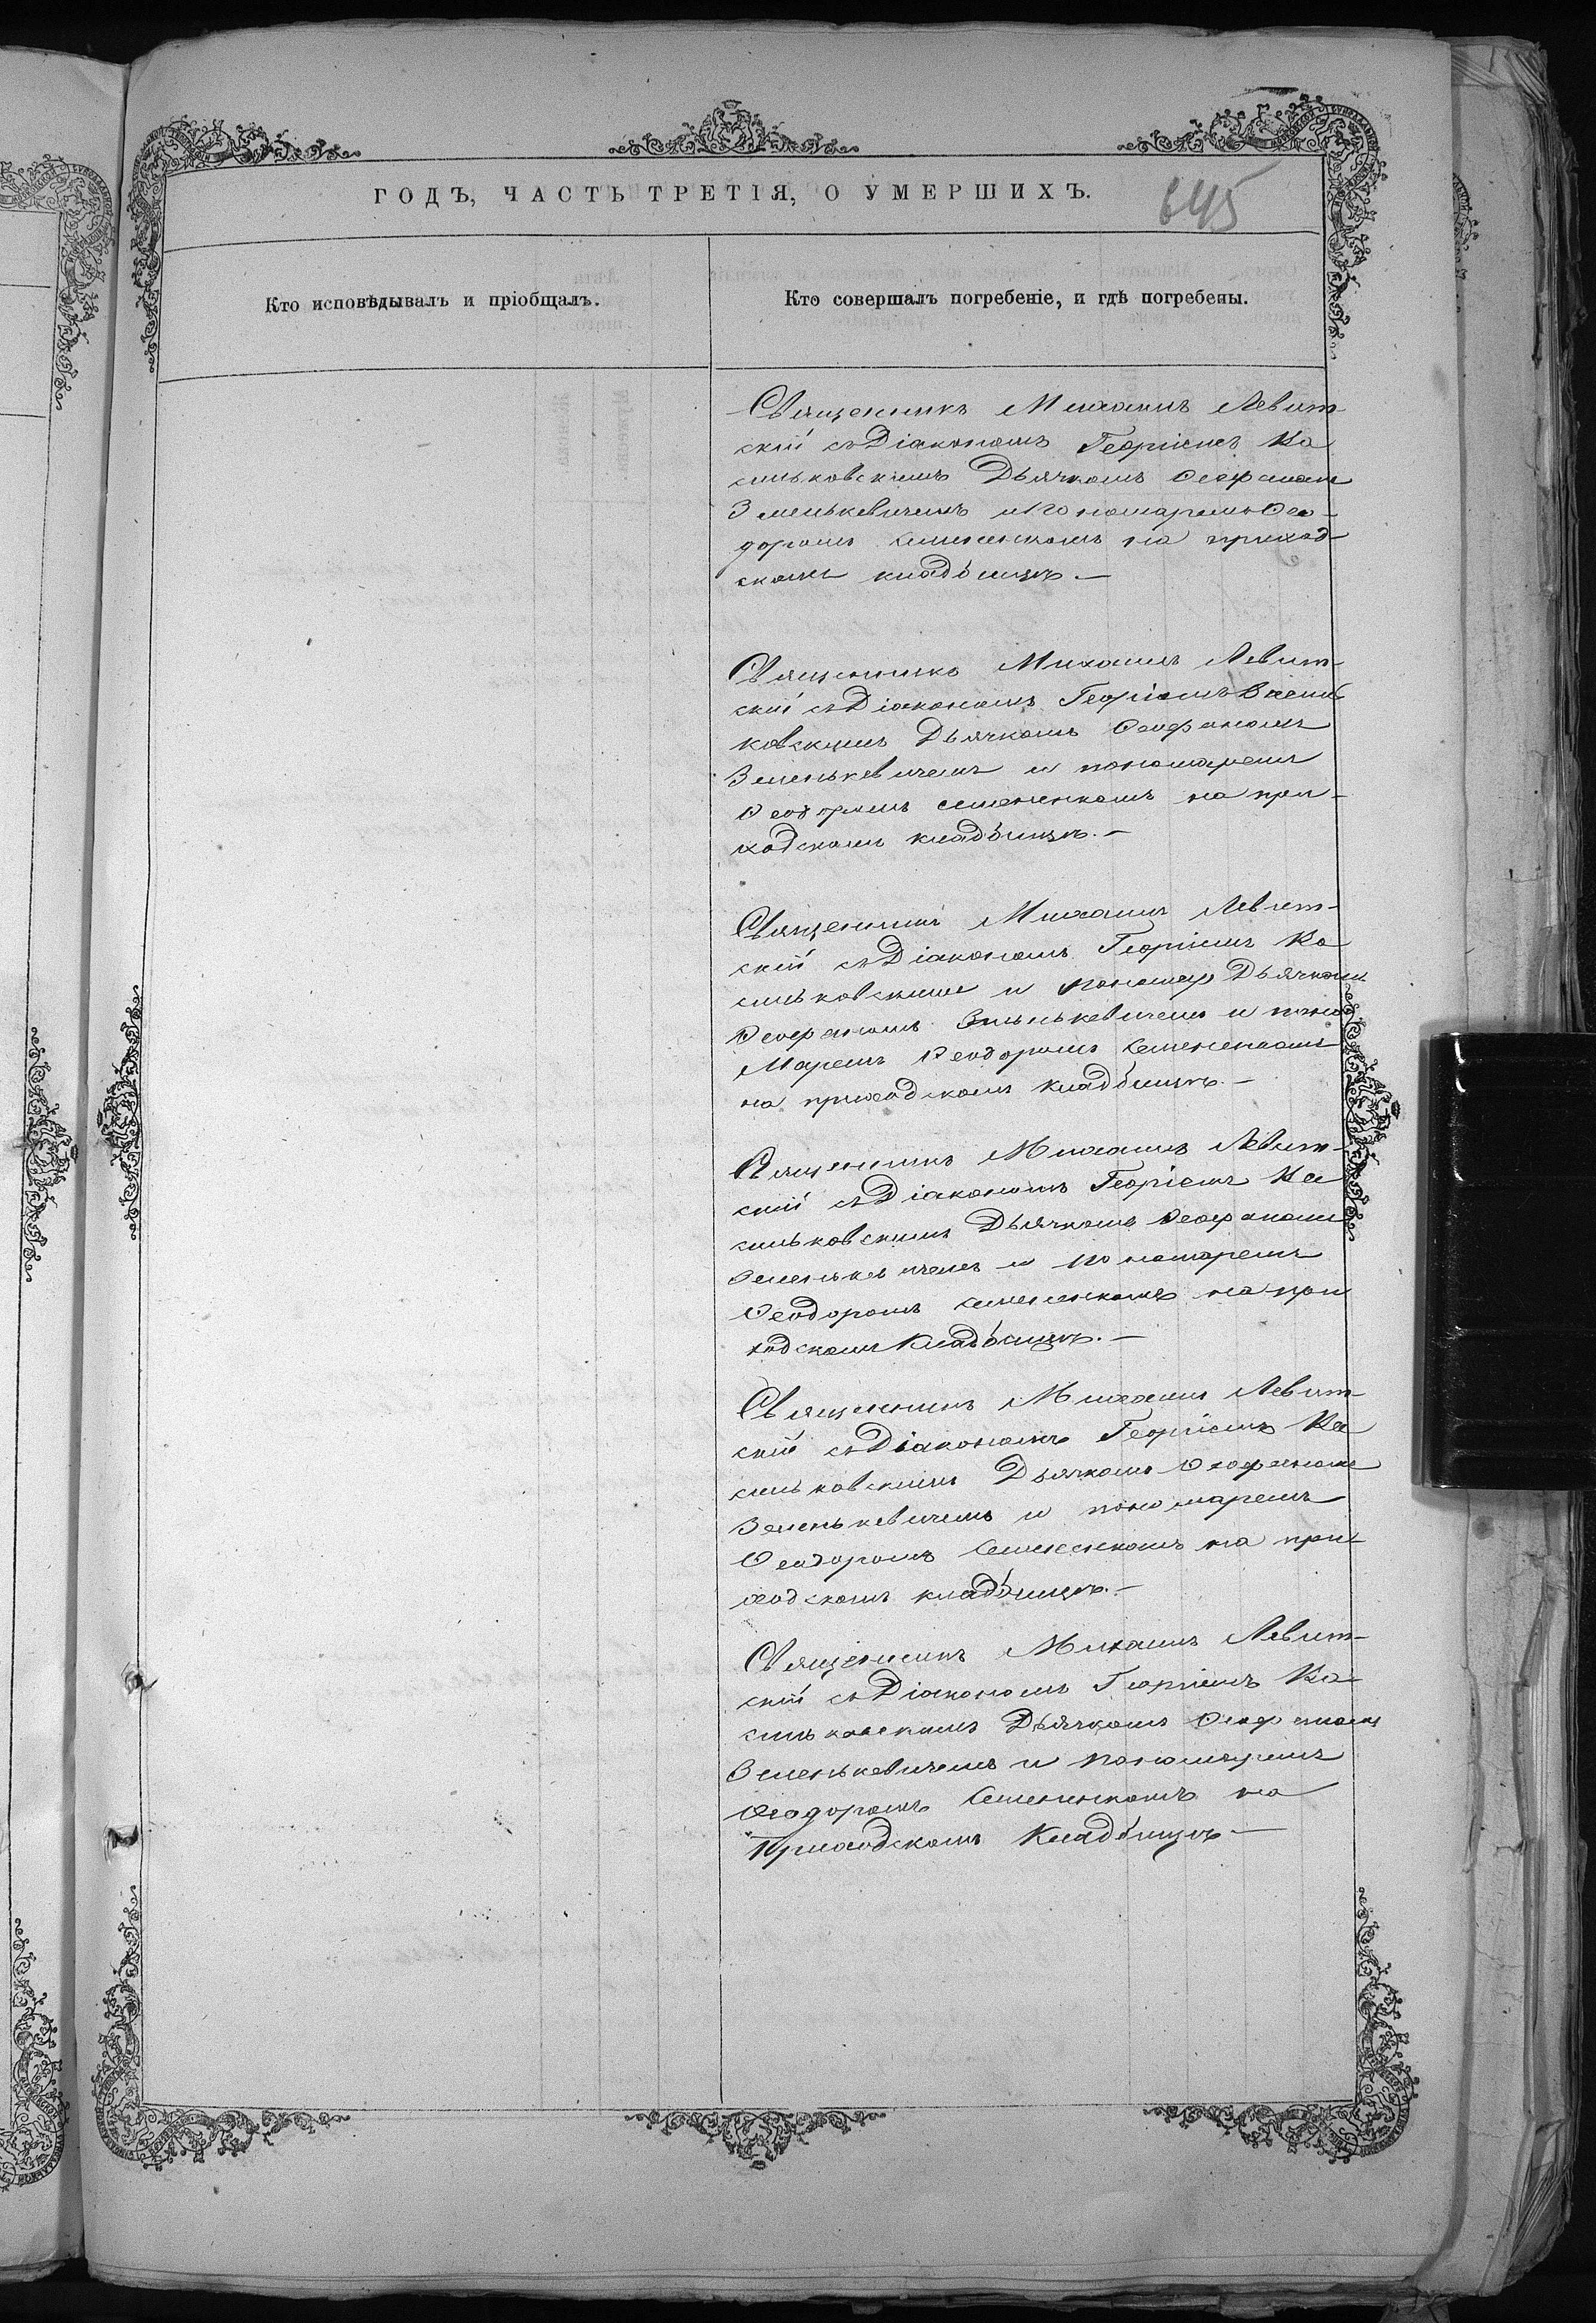 ГОДЪ, ЧАСТЬ ТРЕТІЯ, О УМЕРШИХЪ.
645
Кто исповѣдывалъ и пріобщалъ.
Кто совершалъ погребеніе, и гдѣ погребены.
Священникъ Михаилъ Левит-
скій съ Діакономъ Георгіемъ Ва
сильковскимъ Дьячкомъ Ѳеофаномъ
Зеленькевичемъ и Пономаремъ Ѳео-
доромъ Семененкомъ на приход-
скомъ кладбищѣ. —
Священникъ Михаилъ Левит-
скій съ Діакономъ Георгіемъ Василь
ковскимъ Дьячкомъ Ѳеофаномъ
Зеленькевичемъ и пономаремъ
Ѳеодоромъ Семененкомъ на при-
ходскомъ кладбищѣ. —
Священникъ Михаилъ Левит-
скій съ Діакономъ Георгіемъ Ва
сильковскимъ и пономар Дьячкомъ
Ѳеофаномъ Зеленькевичемъ и поно
маремъ Ѳеодоромъ Семененкомъ
на приходскомъ кладбищѣ. —
Священникъ Михаилъ Левит-
скій съ Діакономъ Георгіемъ Ва
сильковскимъ Дьячкомъ Ѳеофаномъ
Зеленькевичемъ и пономаремъ
Ѳеодоромъ Семененкомъ на при
ходскомъ кладбищѣ. —
Священникъ Михаилъ Левит-
скій съ Діакономъ Георгіемъ Ва
сильковскимъ Дьячкомъ Ѳеофаномъ
Зеленькевичемъ и пономаремъ
Ѳеодоромъ Семененкомъ на при-
ходскомъ кладбищѣ. —
Священникъ Михаилъ Левит-
скій съ Діакономъ Георгіемъ Ва-
сильковскимъ Дьячкомъ Ѳеофаномъ
Зеленькевичемъ и пономаремъ
Ѳеодоромъ Семененкомъ на
Приходскомъ Кладбищѣ —